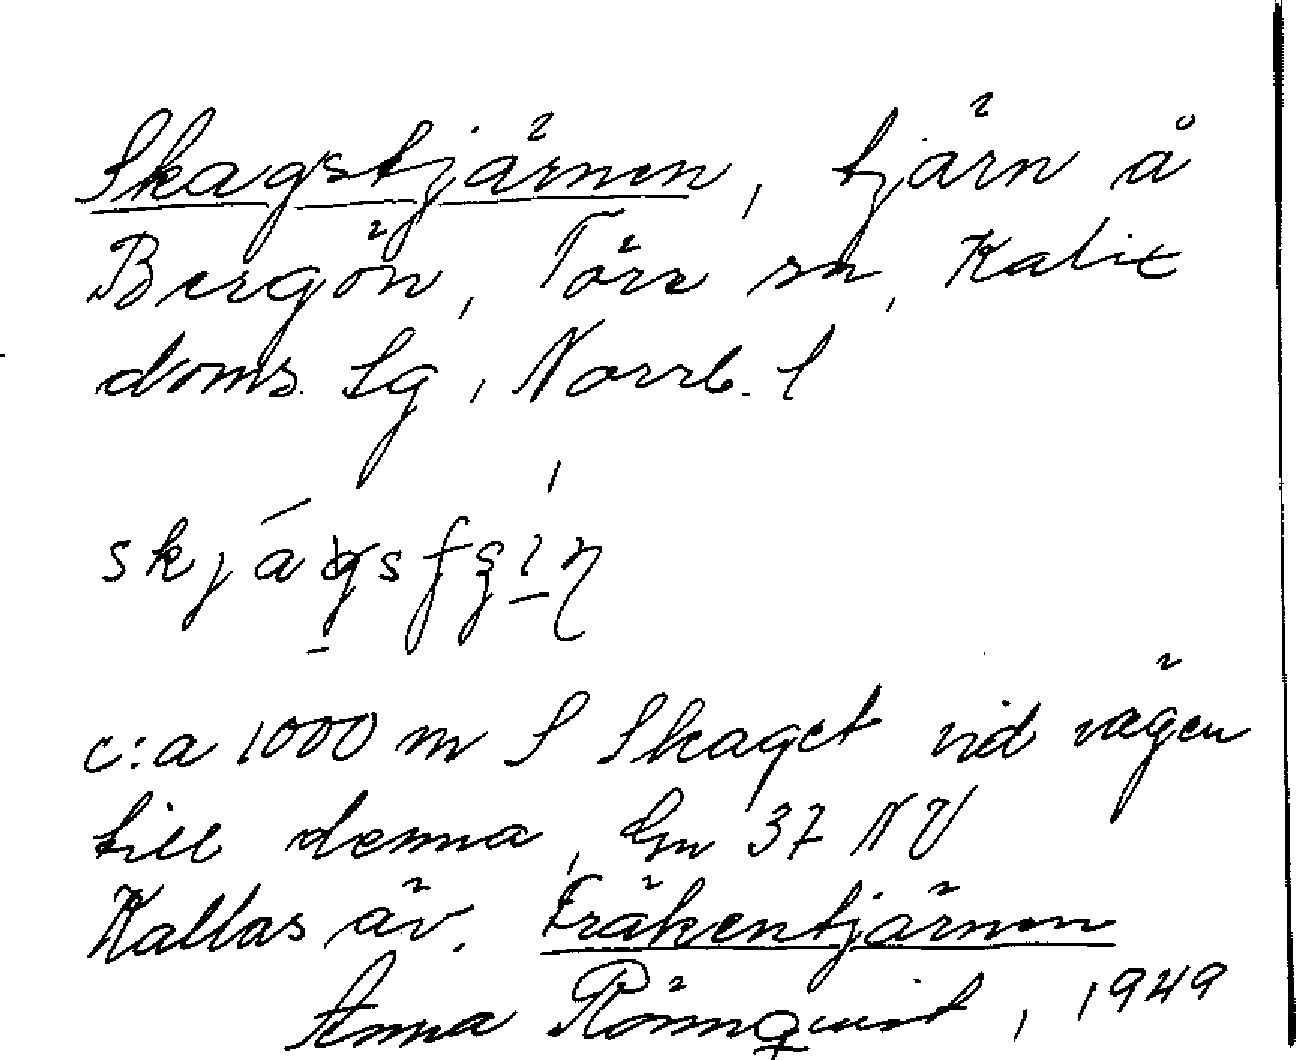 Skagstjärnen, tjärn å
Bergön, Töre sn, Kalix
doms. lg, Norrb. l
c:a 1000 m S Skaget vid vägen
till denna, Gen 37 NV
Kallas äv. Fräkentjärnen
Anna Rönnquist, 1949